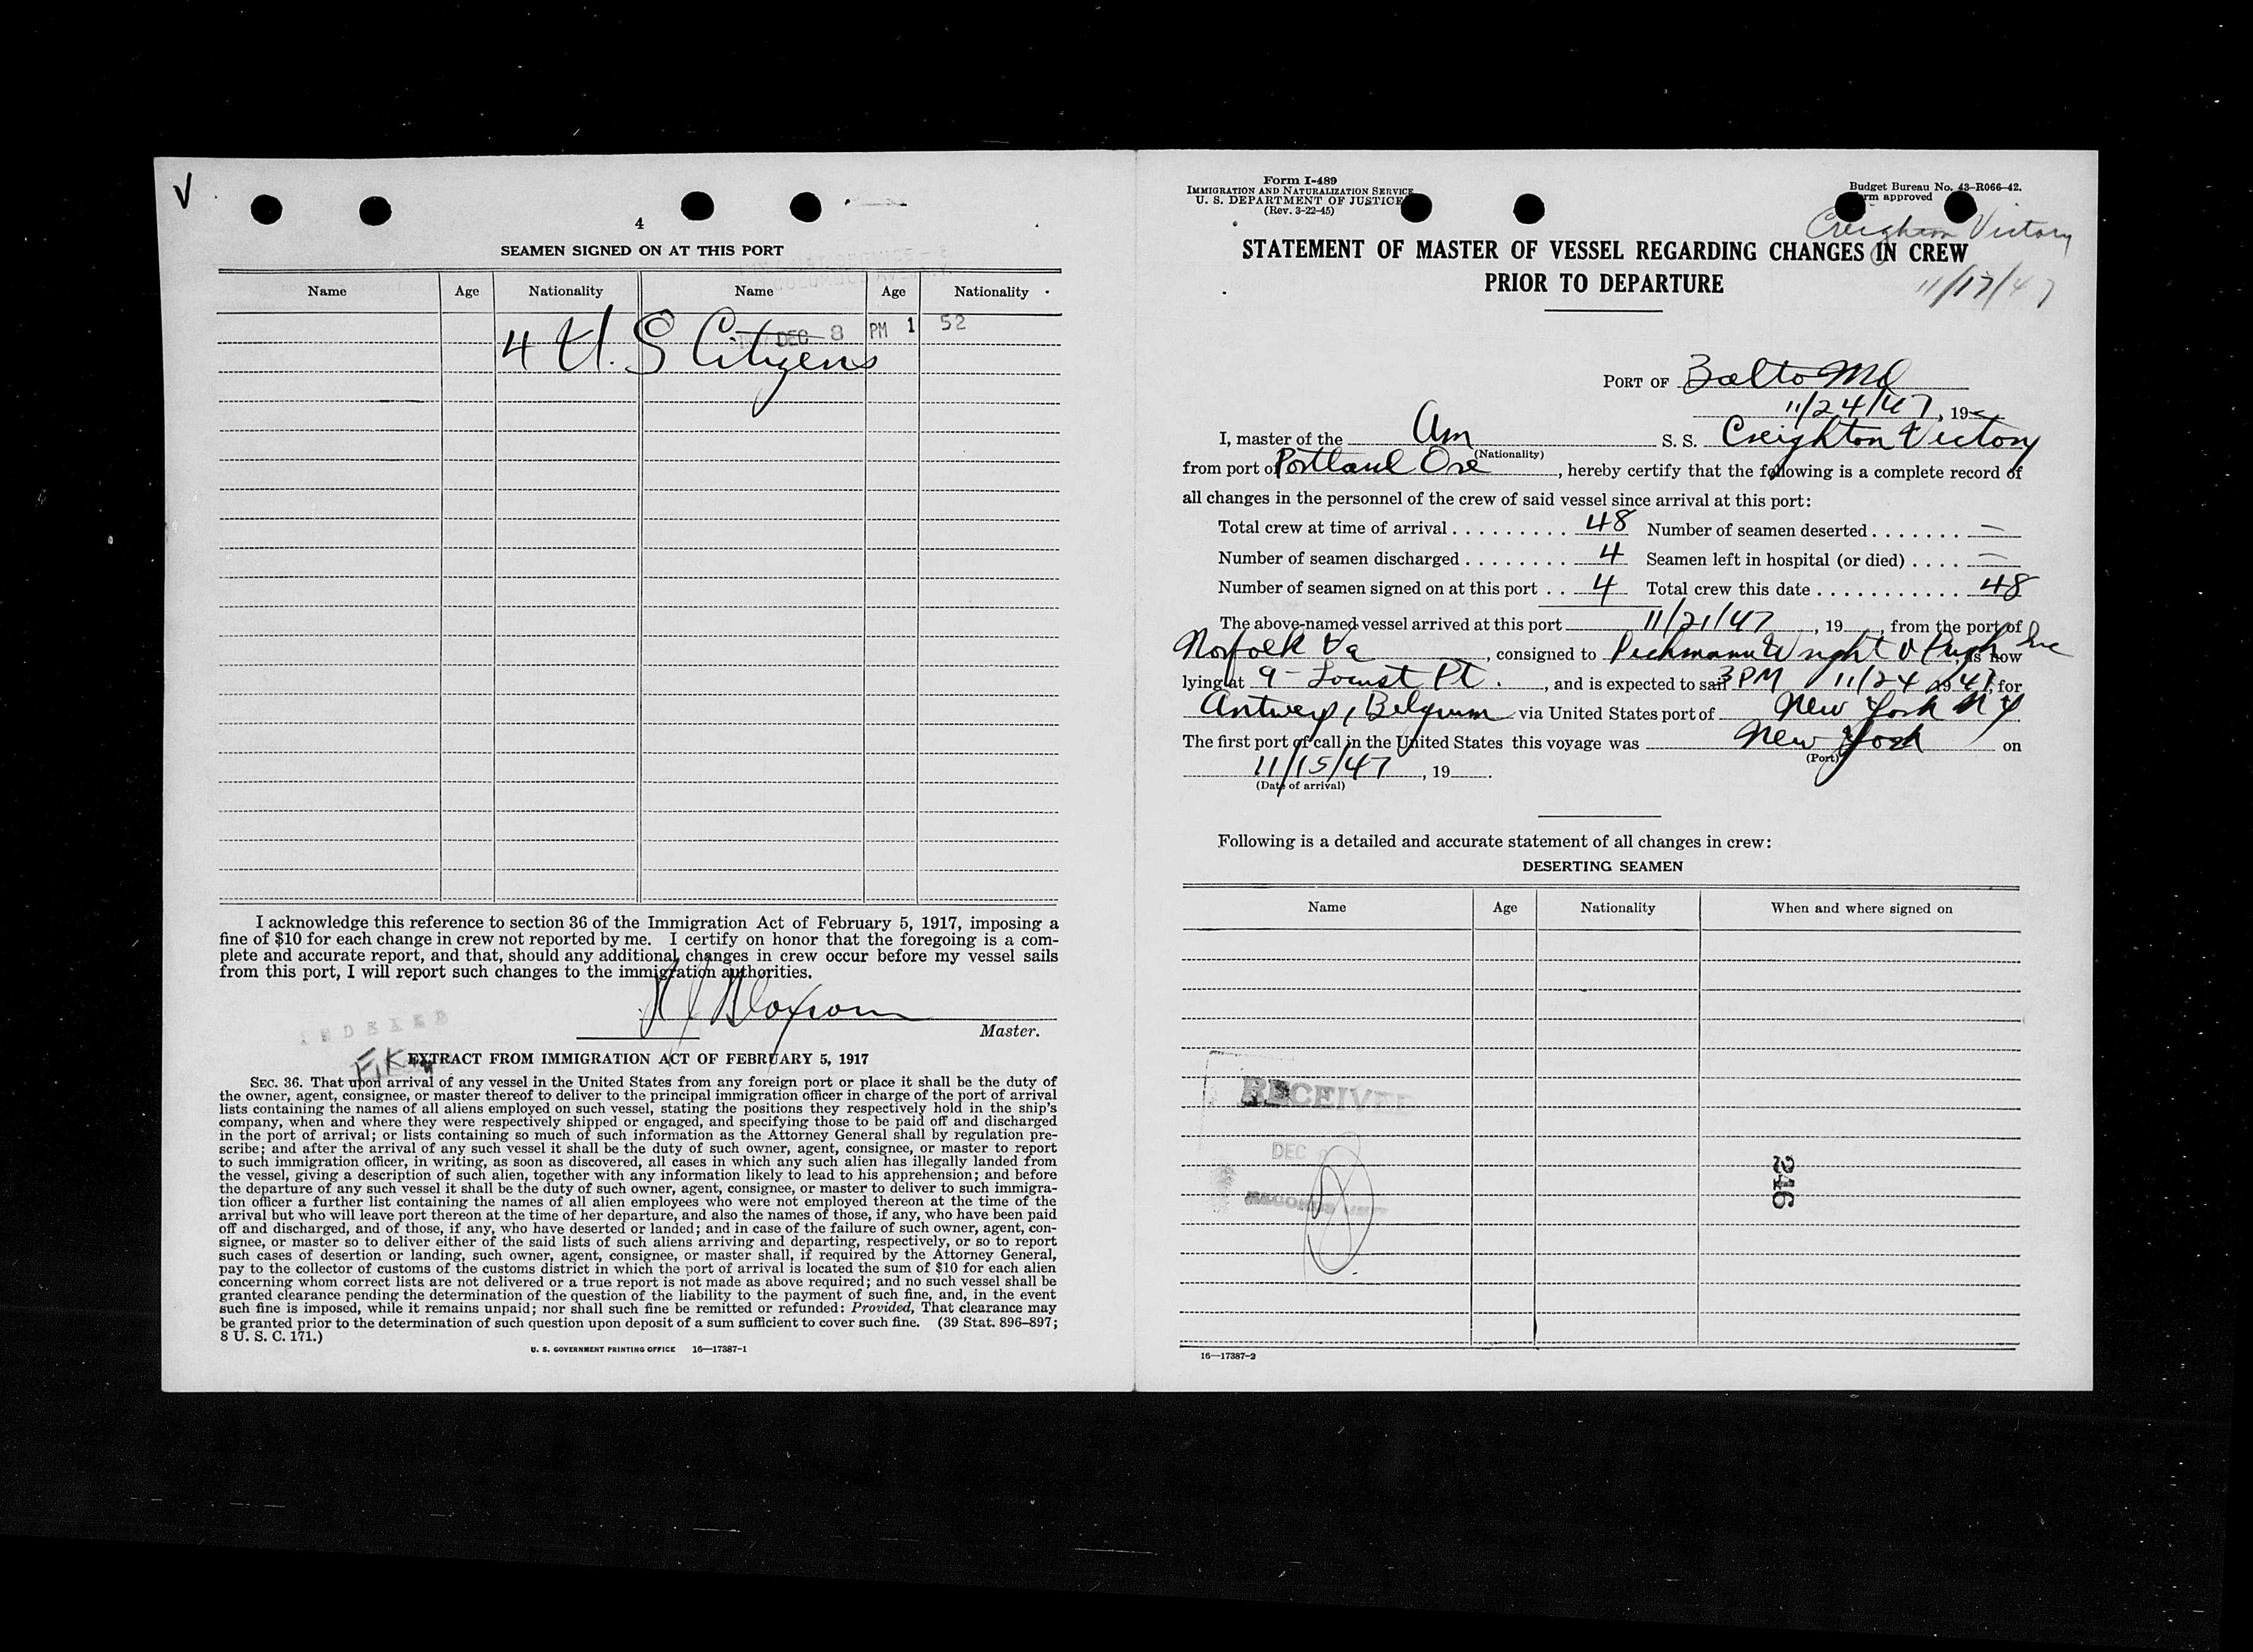 4
SEAMEN SIGNED ON AT THIS PORT
Name Age Nationality Name Age Nationality
DEC 8 PM 1 52
4 U. S Citizens
I acknowledge this reference to section 36 of the Immigration Act of February 5, 1917, imposing a
fine of $10 for each change in crew not reported by me. I certify on honor that the foregoing is a com-
plete and accurate report, and that, should any additional changes in crew occur before my vessel sails
from this port, I will report such changes to the immigration authorities.
Master.
INDEXED
EXTRACT FROM IMMIGRATION ACT OF FEBRUARY 5, 1917
SEC. 36. That upon arrival of any vessel in the United States from any foreign port or place it shall be the duty of
the owner, agent, consignee, or master thereof to deliver to the principal immigration officer in charge of the port of arrival
lists containing the names of all aliens employed on such vessel, stating the positions they respectively hold in the ship's
company, when and where they were respectively shipped or engaged, and specifying those to be paid off and discharged
in the port of arrival; or lists containing so much of such information as the Attorney General shall by regulation pre-
scribe; and after the arrival of any such vessel it shall be the duty of such owner, agent, consignee, or master to report
to such immigration officer, in writing, as soon as discovered, all cases in which any such alien has illegally landed from
the vessel, giving a description of such alien, together with any information likely to lead to his apprehension; and before
the departure of any such vessel it shall be the duty of such owner, agent, consignee, or master to deliver to such immigra-
tion officer a further list containing the names of all alien employees who were not employed thereon at the time of the
arrival but who will leave port thereon at the time of her departure, and also the names of those, if any, who have been paid
off and discharged, and of those, if any, who have deserted or landed; and in case of the failure of such owner, agent, con-
signee, or master so to deliver either of the said lists of such aliens arriving and departing, respectively, or so to report
such cases of desertion or landing, such owner, agent, consignee, or master shall, if required by the Attorney General,
pay to the collector of customs of the customs district in which the port of arrival is located the sum of $10 for each alien
concerning whom correct lists are not delivered or a true report is not made as above required; and no such vessel shall be
granted clearance pending the determination of the question of the liability to the payment of such fine, and, in the event
such fine is imposed, while it remains unpaid; nor shall such fine be remitted or refunded: Provided, That clearance may
be granted prior to the determination of such question upon deposit of a sum sufficient to cover such fine. (39 Stat. 896–897;
8 U. S. C. 171.)
U. S. GOVERNMENT PRINTING OFFICE 16—17387-1
Form I-489
IMMIGRATION AND NATURALIZATION SERVICE
U. S. DEPARTMENT OF JUSTICE
(Rev. 3-22-45)
Budget Bureau No. 43-R066-42.
rm approved
Creighton Victory
STATEMENT OF MASTER OF VESSEL REGARDING CHANGES IN CREW
PRIOR TO DEPARTURE
11/17/47
PORT OF Balto Md
11/24/47, 19
I, master of the Am S. S. Creighton Victory
(Nationality)
from port of Portland Ore, hereby certify that the following is a complete record of
all changes in the personnel of the crew of said vessel since arrival at this port:
Total crew at time of arrival . . . . . . . . . . 48 Number of seamen deserted . . . . . . . —
Number of seamen discharged . . . . . . . . 4 Seamen left in hospital (or died) . . . . —
Number of seamen signed on at this port . . 4 Total crew this date . . . . . . . . . . . 48
The above-named vessel arrived at this port 11/21/47, 19 , from the port of
Norfolk Va, consigned to Wright & Pugh Inc, is now
lying at 9 - Locust Pt., and is expected to sail 3 PM 11/24 1947, for
Antwerp, Belgium via United States port of New York N Y
The first port of call in the United States this voyage was New York on
(Port)
11/15/47, 19 .
(Date of arrival)
Following is a detailed and accurate statement of all changes in crew:
DESERTING SEAMEN
Name Age Nationality When and where signed on
RECEIVED
DEC
246
16—17387-2